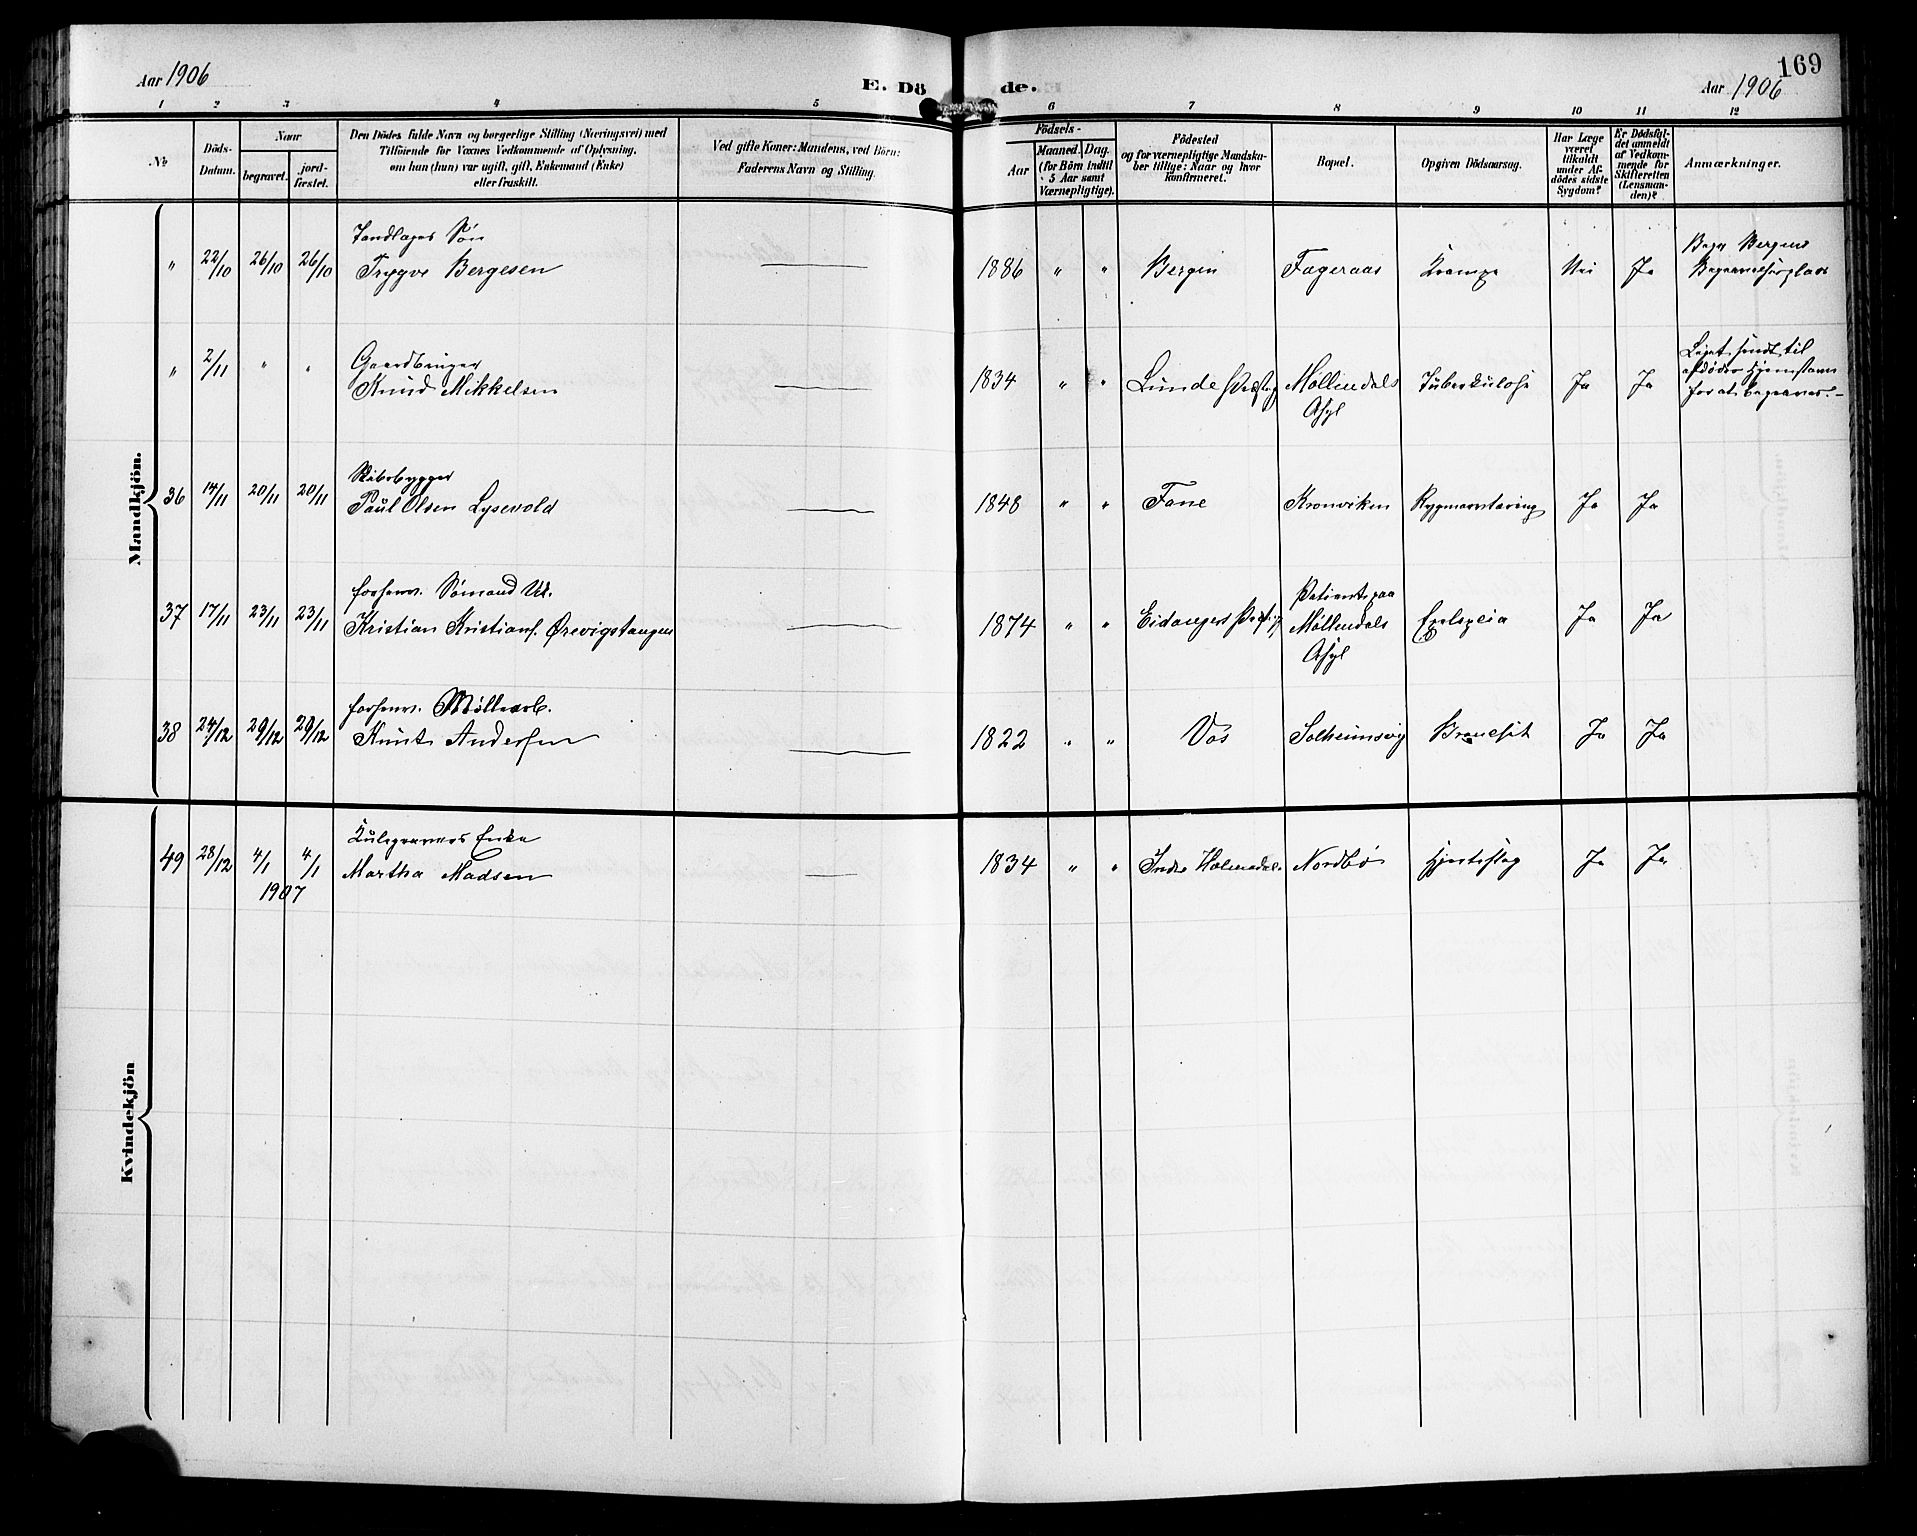 Aar 1906
E. Dö de.
169
Aar 1906
1 2 3 4 5 6 7 8 9 10 11 12
No
Döds-
Datum.
Naar
begravet.
jord-
fæstet.
Den Dödes fulde Navn og borgerlige Stilling (Næringsvei) med
Tilföiende for Voxnes Vedkommende af Oplysning,
om han (hun) var ugift, gift, Enkemand (Enke)
eller fraskilt.
Ved gifte Koner: Mandens, ved Börn:
Faderens Navn og Stilling.
Födsels-
Aar
Maaned. Dag.
(for Börn indtil
5 Aar samt
Værnepligtige).
Födested
og for værnepligtige Mandska-
ber tillige: Naar og hvor
konfirmeret.
Bopæl.
Opgiven Dödsaarsag.
Har Læge
været
tilkaldt
under Af-
dödes sidste
Sygdom?
Er Dödsfal-
det anmeldt
af Vedkom-
mende for
Skifteretten
(Lensman-
den)?
Anmærkninger.
Mandkjön.
Tandlæges Søn
" 22/10 26/10 26/10 Trygve Bergesen 1886 " " Bergen Fageraas Krampe Nei Ja
Begr Bergens
Begravelsesplads
Gaardbruger
" 2/11 " " Knud Mikkelsen 1834 " " Lunde Præsteg Møllendals Tuberkulose Ja Ja
Asyl
Liget sendt til
afdødes Hjemstavn
for at begraves.
Skibsbygger
36 14/11 20/11 20/11 Paul Olsen Lysevold 1848 " " Fane Kronviken Rygmarvstæring Ja Ja
forhenv. Sømand Uk.
37 17/11 23/11 23/11 Kristian Kristians. Ørevigstangen 1874 " " Eidangers Præstgj
Patient paa
Møllendals
Asyl
Epilepsia Ja Ja
forhenv. Møllearb.
38 24/12 29/12 29/12 Knut Andersen 1822 " " Vos Solheimsvig Bronchit Ja Ja
Kvindekjön
Enke
49 28/12 4/1 4/1 Martha Madsen 1834 " " Indre Holmedal Nordbø Hjerteslag Ja Ja
1907